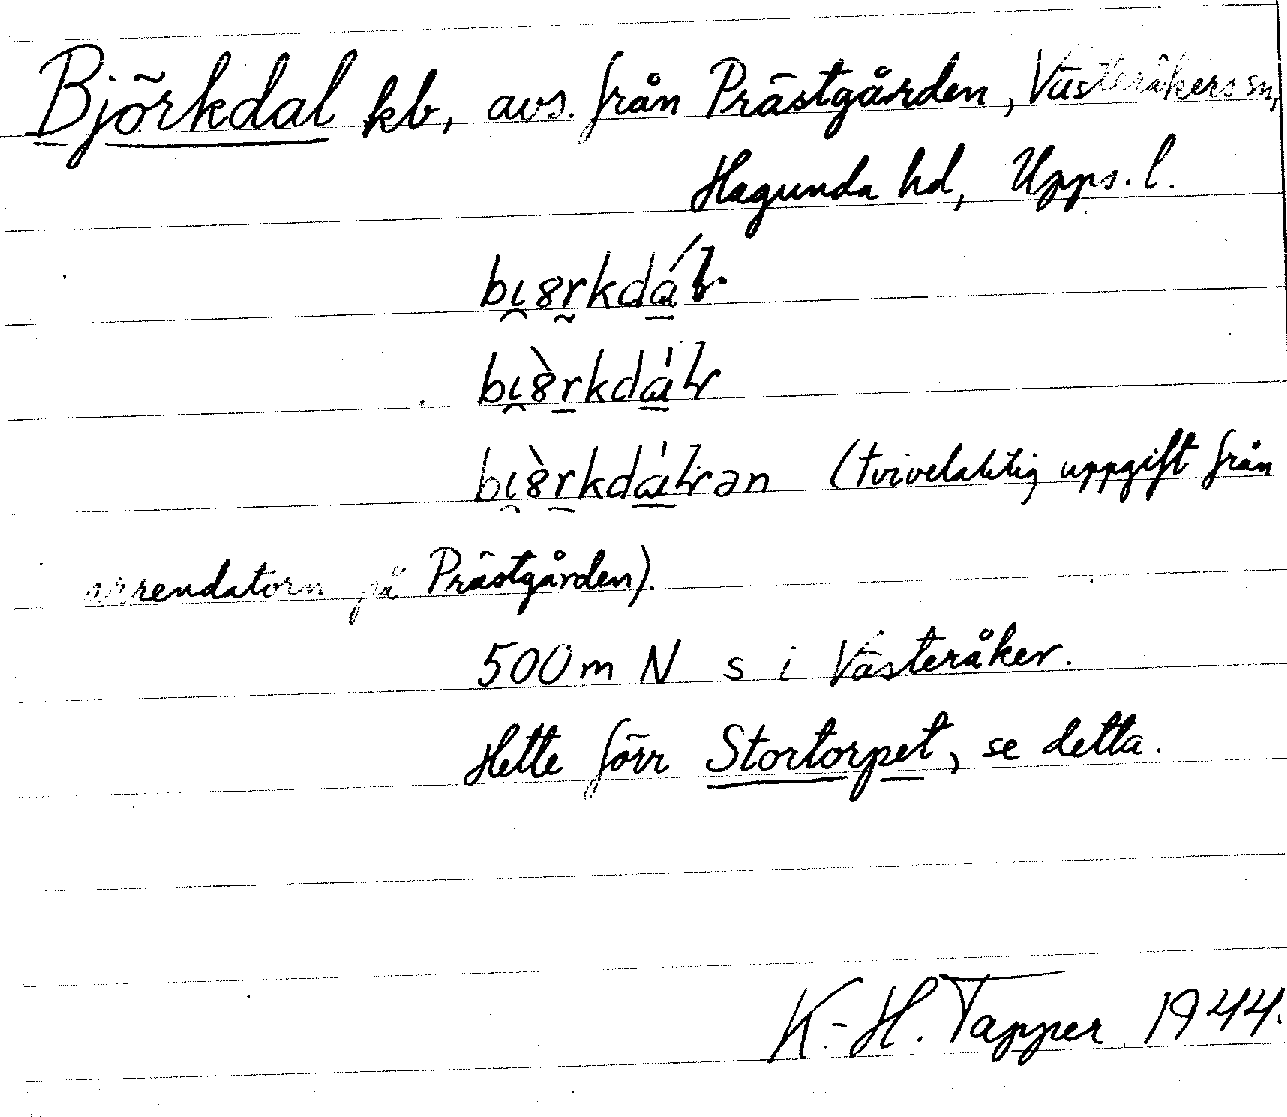 Björkdal kb, avs. från Prästgården, Västeråkers sn,
Hagunda hd, Upps. l.
(tvivelaktig uppgift från
arrendatorn på Prästgården).
500 m N s i Västeråker.
Hette förr Stortorpet, se detta.
K.-H. Tapper 1944.